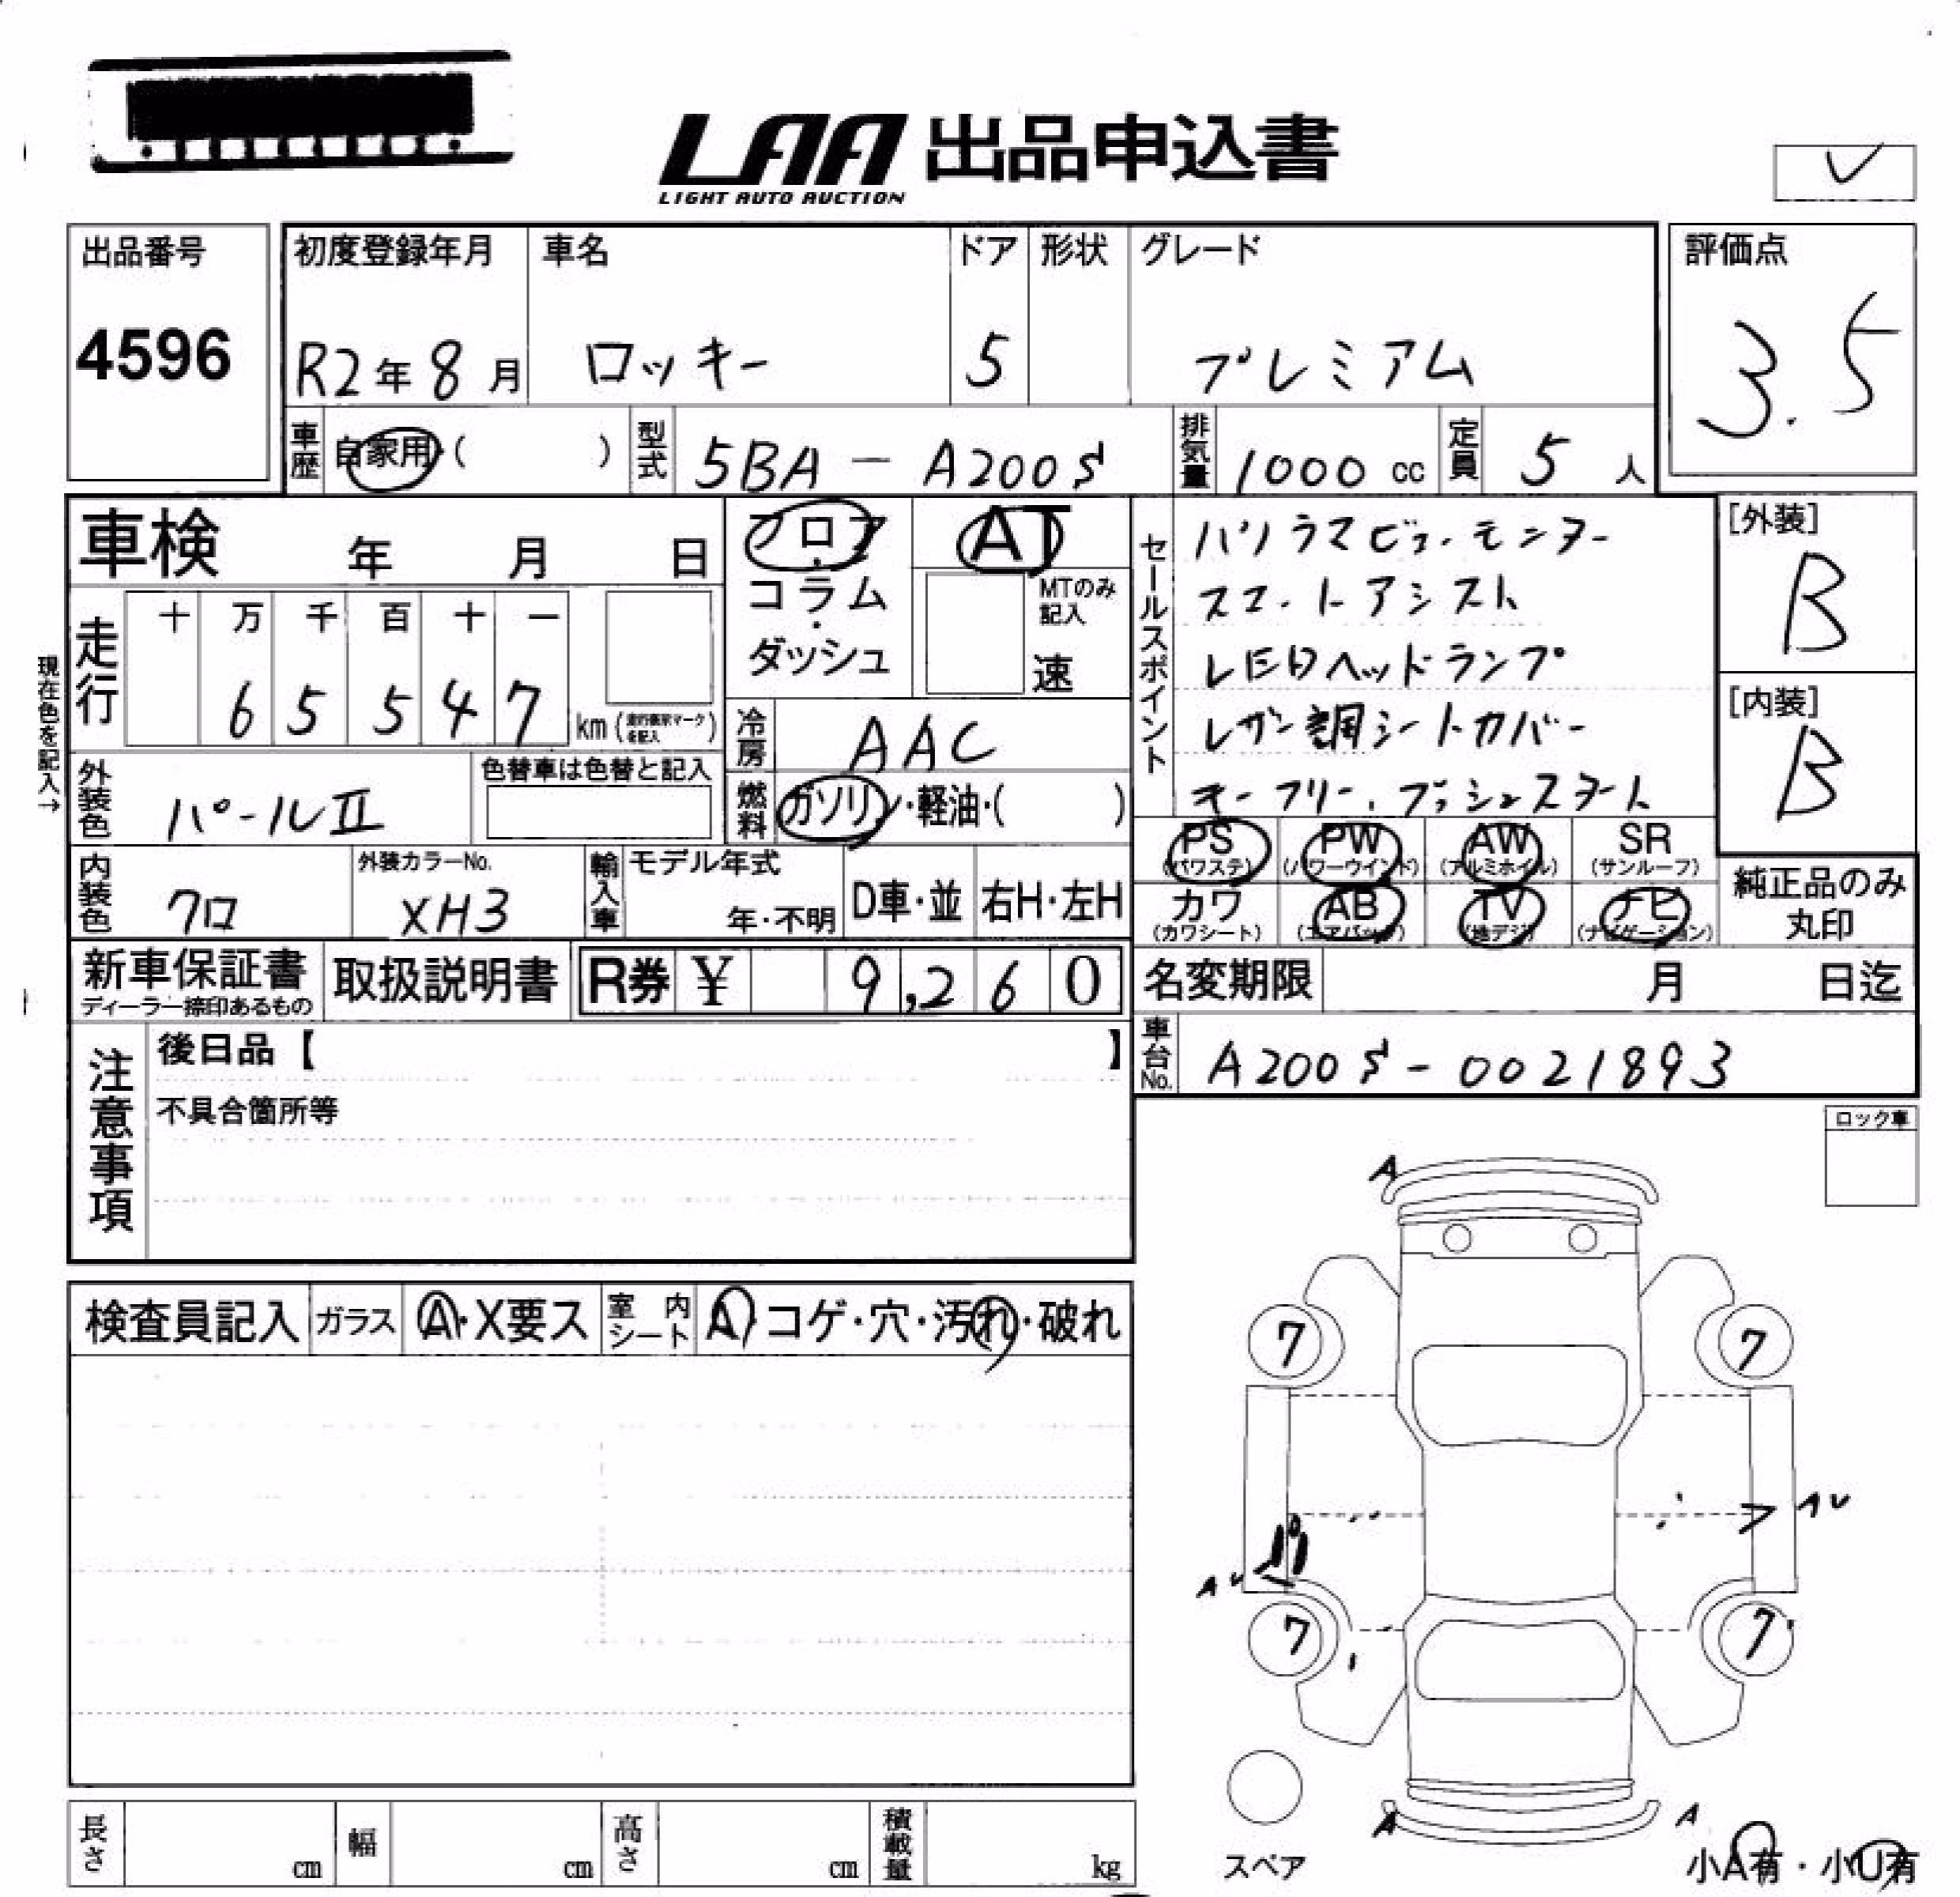 LAA 出品申込書
LIGHT AUTO AUCTION
出品番号
4596
初度登録年月
R2年8月
車名
ロッキー
ドア
5
形状
グレード
プレミアム
評価点
3.5
車歴
自家用・( )
型式
5BA - A200S
排気量
1000 cc
定員
5人
車検 年 月 日
フロア・コラム・ダッシュ
AT
MTのみ記入
速
セールスポイント
パノラマビューモニター
スマートアシスト
LEDヘッドランプ
レザー調シートカバー
キーフリー、プッシュスタート
[外装]
B
[内装]
B
走行
十 万 千 百 十 一
6 5 5 4 7
km
現在色を記入→
冷房
AAC
外装色
パールⅡ
色替車は色替と記入
燃料
ガソリン・軽油・( )
内装色
クロ
外装カラーNo.
XH3
輸入車
モデル年式
年・不明
D車・並
右H・左H
PS (パワステ)
PW (パワーウインド)
AW (アルミホイル)
SR (サンルーフ)
カワ (カワシート)
AB (エアバック)
TV (地デジ)
ナビ (ナビゲーション)
純正品のみ丸印
新車保証書
ディーラー捺印あるもの
取扱説明書
R券 ¥ 9,260
名変期限 月 日迄
注意事項
後日品【 】
不具合箇所等
車台No.
A200S-0021893
ロック車
検査員記入
ガラス
A・X要ス
室内シート
A・コゲ・穴・汚れ・破れ
A
7 7
AU
AU
7 7
A A
スペア
小A有・小U有
長さ cm
幅 cm
高さ cm
積載量 kg